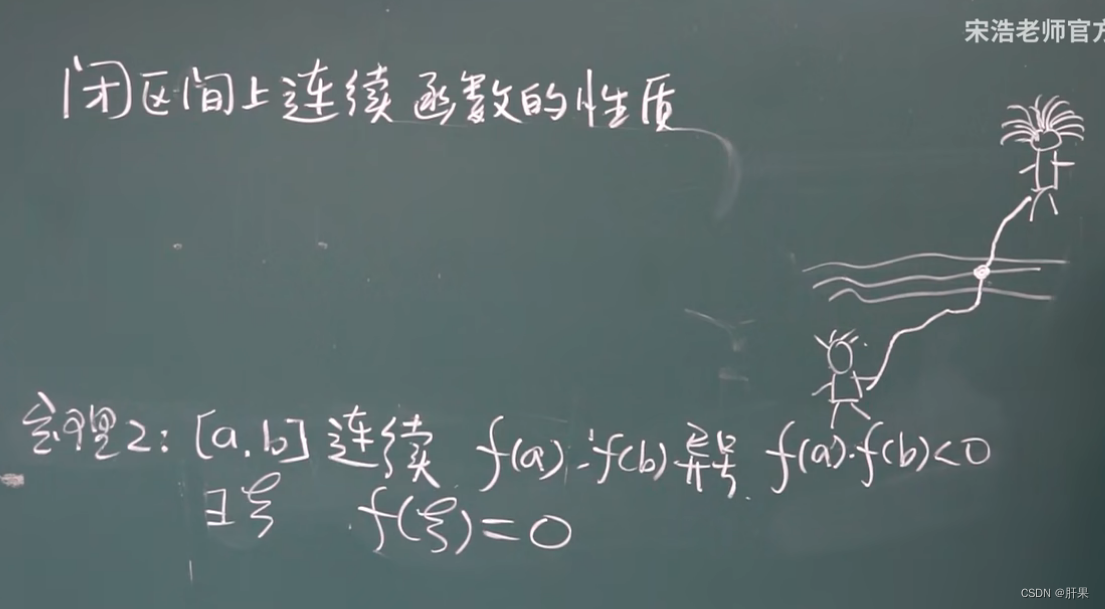 宋浩老师官方
闭区间上连续函数的性质
定理2: [a,b] 连续. f(a)、f(b)异号. f(a)·f(b)<0
∃ξ f(ξ)=0
CSDN @肝果